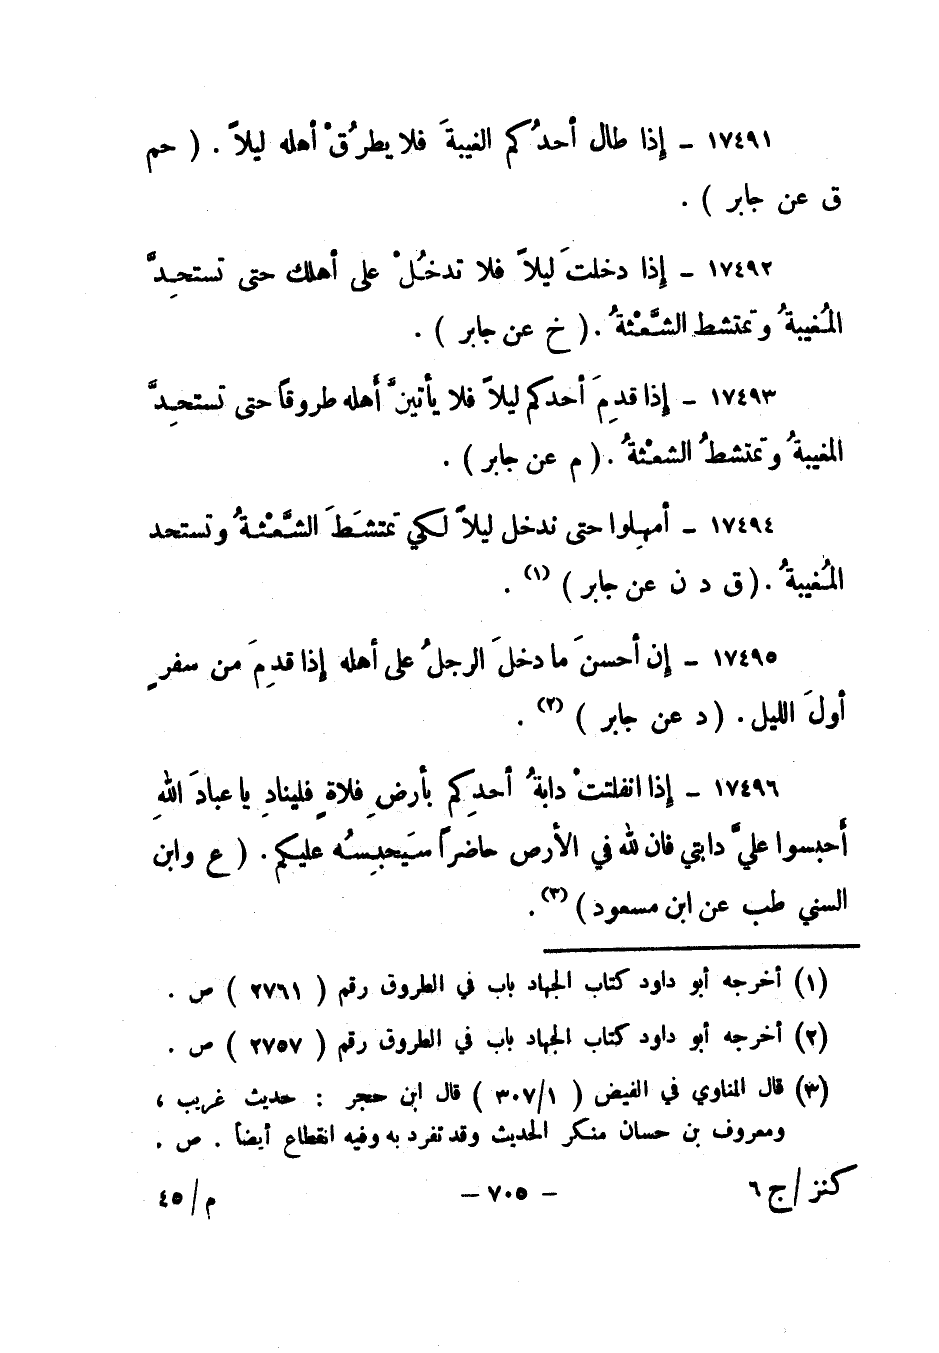 ١٧٤٩١ - إذا طال أحدُكم الغيبةَ فلا يطرُقْ أهله ليلاً . ( حم
ق عن جابر ) .
١٧٤٩٢ - إذا دخلتَ ليلاً فلا تدخُلْ على أهلك حتى تستحِدَّ
المُغيبةُ وتمتشط الشَّعْثةُ . ( خ عن جابر ) .
١٧٤٩٣ - إذا قدِمَ أحدكم ليلاً فلا يأتينَّ أَهله طروقاً حتى تستحِدَّ
المغيبةُ وتمتشطُ الشعْثةُ . ( م عن جابر ) .
١٧٤٩٤ - أمهِلوا حتى ندخل ليلاً لكي تمتشَطَ الشَّعْثةُ وتستحد
المُغيبةُ . ( ق د ن عن جابر ) (١) .
١٧٤٩٥ - إن أحسنَ ما دخلَ الرجلُ على أهله إذا قدِمَ من سفرٍ
أولَ الليل . ( د عن جابر ) (٢) .
١٧٤٩٦ - إذا انفلتتْ دابةُ أحدِكم بأرضِ فلاةٍ فلينادِ يا عبادَ اللهِ
أَحبسوا عليَّ دابتي فان لله في الأرص حاضراً سيَحبِسُه عليكم . ( ع وابن
السني طب عن ابن مسعود ) (٣) .
(١) أخرجه أبو داود كتاب الجهاد باب في الطروق رقم ( ٢٧٦١ ) ص .
(٢) أخرجه أبو داود كتاب الجهاد باب في الطروق رقم ( ٢٧٥٧ ) ص .
(٣) قال المناوي في الفيض ( ٣٠٧/١ ) قال ابن حجر : حديث غريب ،
ومعروف بن حسان منكر الحديث وقد تفرد به وفيه انقطاع أيضاً . ص .
كنز / ج ٦ - ٧٠٥ - م / ٤٥